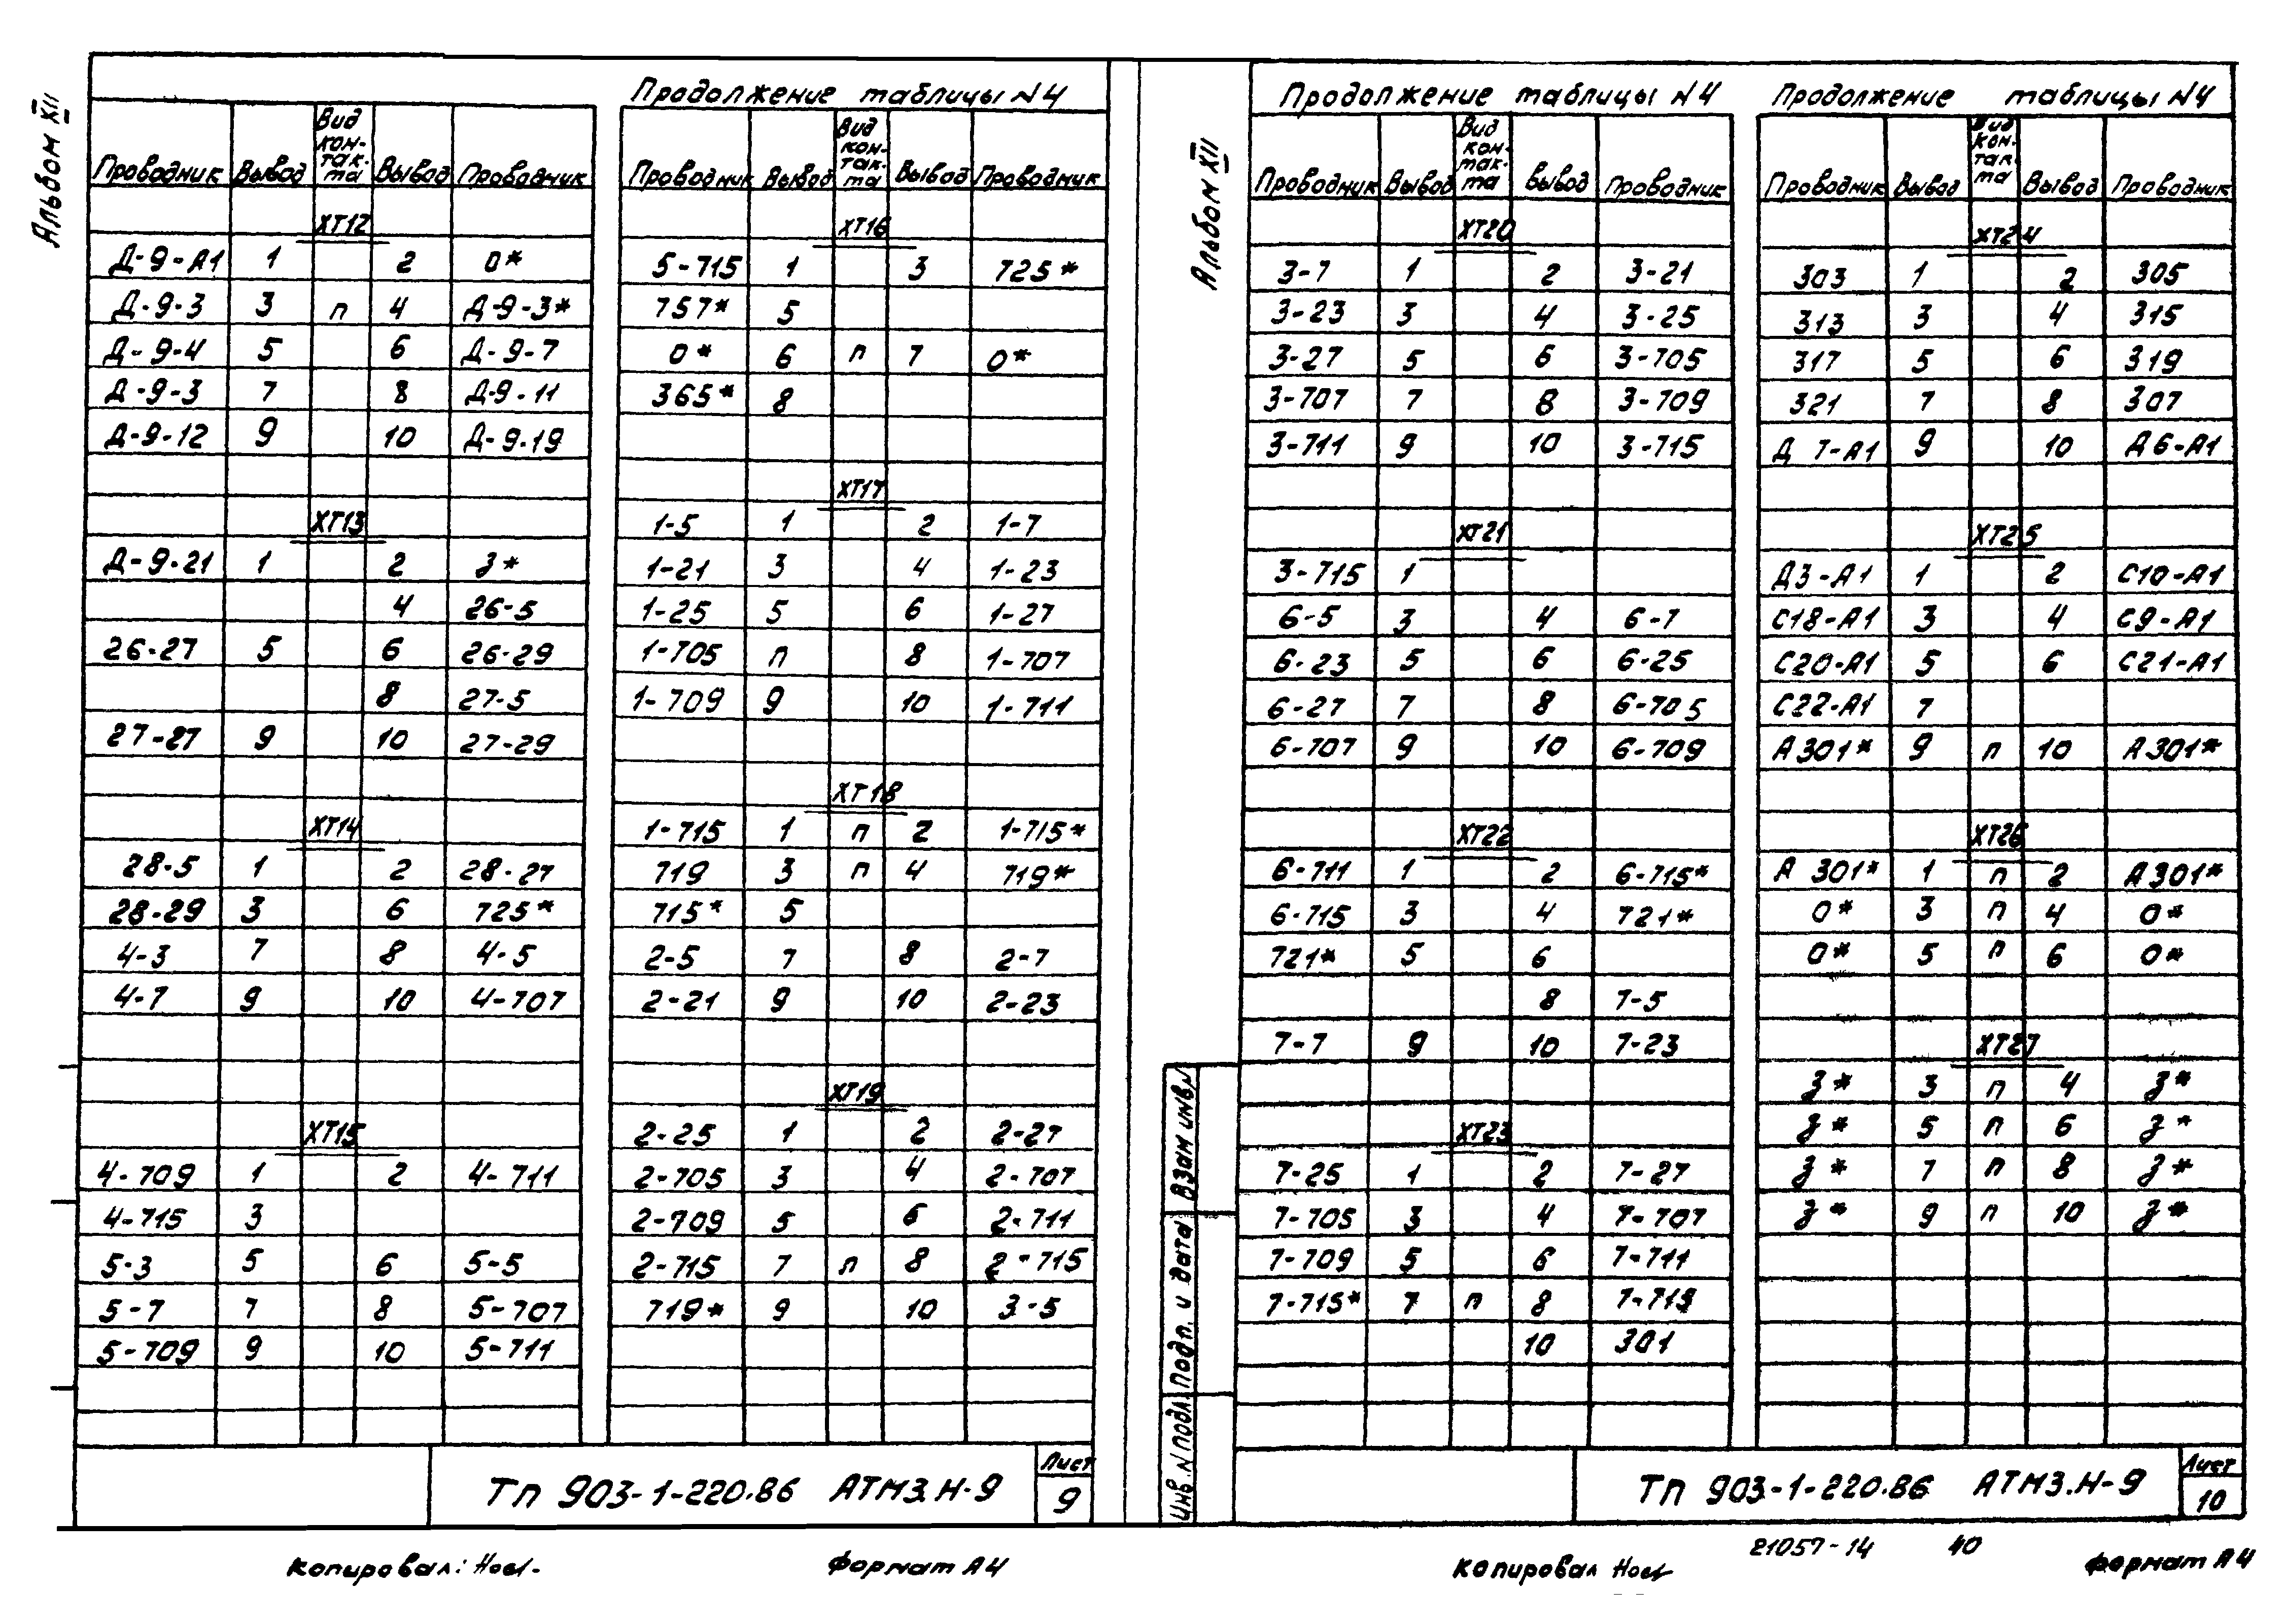 Альбом XII
Продолжение таблицы N4
Проводник Вывод Вид кон-так-та Вывод Проводник
XT12
Д-9-А1 1 2 0*
Д-9-3 3 п 4 Д-9-3*
Д-9-4 5 6 Д-9-7
Д-9-3 7 8 Д-9-11
Д-9-12 9 10 Д-9-19
XT13
Д-9-21 1 2 З*
4 26-5
26-27 5 6 26-29
8 27-5
27-27 9 10 27-29
XT14
28-5 1 2 28-27
28-29 3 6 725*
4-3 7 8 4-5
4-7 9 10 4-707
XT15
4-709 1 2 4-711
4-715 3
5-3 5 6 5-5
5-7 7 8 5-707
5-709 9 10 5-711
Проводник Вывод Вид кон-так-та Вывод Проводник
XT16
5-715 1 3 725*
757* 5
0* 6 п 7 0*
365* 8
XT17
1-5 1 2 1-7
1-21 3 4 1-23
1-25 5 6 1-27
1-705 п 8 1-707
1-709 9 10 1-711
XT18
1-715 1 п 2 1-715*
719 3 п 4 719*
715* 5
2-5 7 8 2-7
2-21 9 10 2-23
XT19
2-25 1 2 2-27
2-705 3 4 2-707
2-709 5 6 2-711
2-715 7 п 8 2-715
719* 9 10 3-5
ТП 903-1-220.86 АТМ3.Н-9
Лист
9
Копировал:
Формат А4
Альбом XII
Продолжение таблицы N4
Проводник Вывод Вид кон-так-та Вывод Проводник
XT20
3-7 1 2 3-21
3-23 3 4 3-25
3-27 5 6 3-705
3-707 7 8 3-709
3-711 9 10 3-715
XT21
3-715 1
6-5 3 4 6-7
6-23 5 6 6-25
6-27 7 8 6-705
6-707 9 10 6-709
XT22
6-711 1 2 6-715*
6-715 3 4 721*
721* 5 6
8 7-5
7-7 9 10 7-23
XT23
7-25 1 2 7-27
7-705 3 4 7-707
7-709 5 6 7-711
7-715* 7 п 8 7-715
10 301
Продолжение таблицы N4
Проводник Вывод Вид кон-так-та Вывод Проводник
XT24
303 1 2 305
313 3 4 315
317 5 6 319
321 7 8 307
Д 7-А1 9 10 Д6-А1
XT25
Д3-А1 1 2 С10-А1
С18-А1 3 4 С9-А1
С20-А1 5 6 С21-А1
С22-А1 7
А301* 9 п 10 А301*
XT26
А 301* 1 п 2 А301*
0* 3 п 4 0*
0* 5 п 6 0*
XT27
З* 3 п 4 З*
З* 5 п 6 З*
З* 7 п 8 З*
З* 9 п 10 З*
Инв. N подл. Подп. и дата Взам инв. N
ТП 903-1-220.86 АТМ3.Н-9
Лист
10
21057-14 40
Копировал
Формат А4